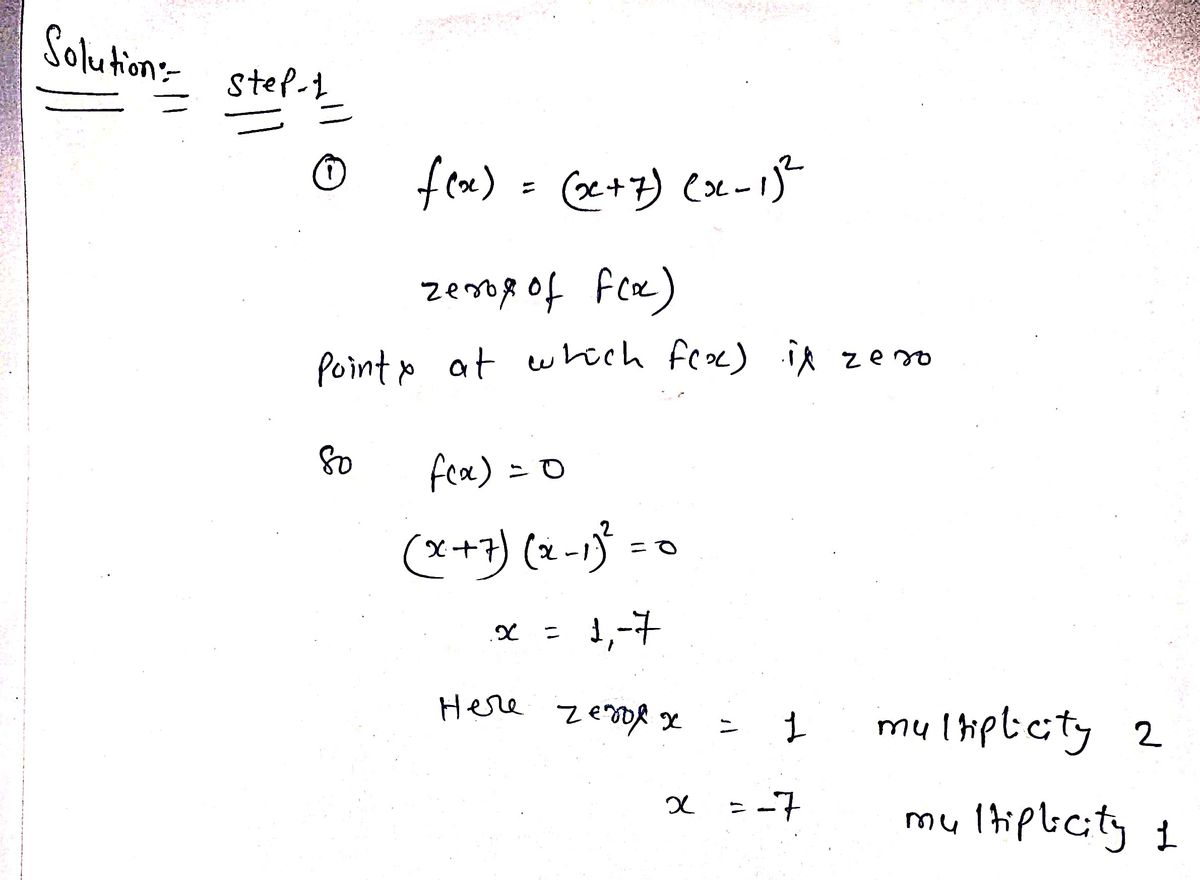 Solution:-
Step-1
① f(x) = (x+7) (x-1)²
zeros of f(x)
Points at which f(x) is zero
So f(x) = 0
(x+7) (x-1)² = 0
x = 1,-7
Here zeros x = 1 multiplicity 2
x = -7 multiplicity 1